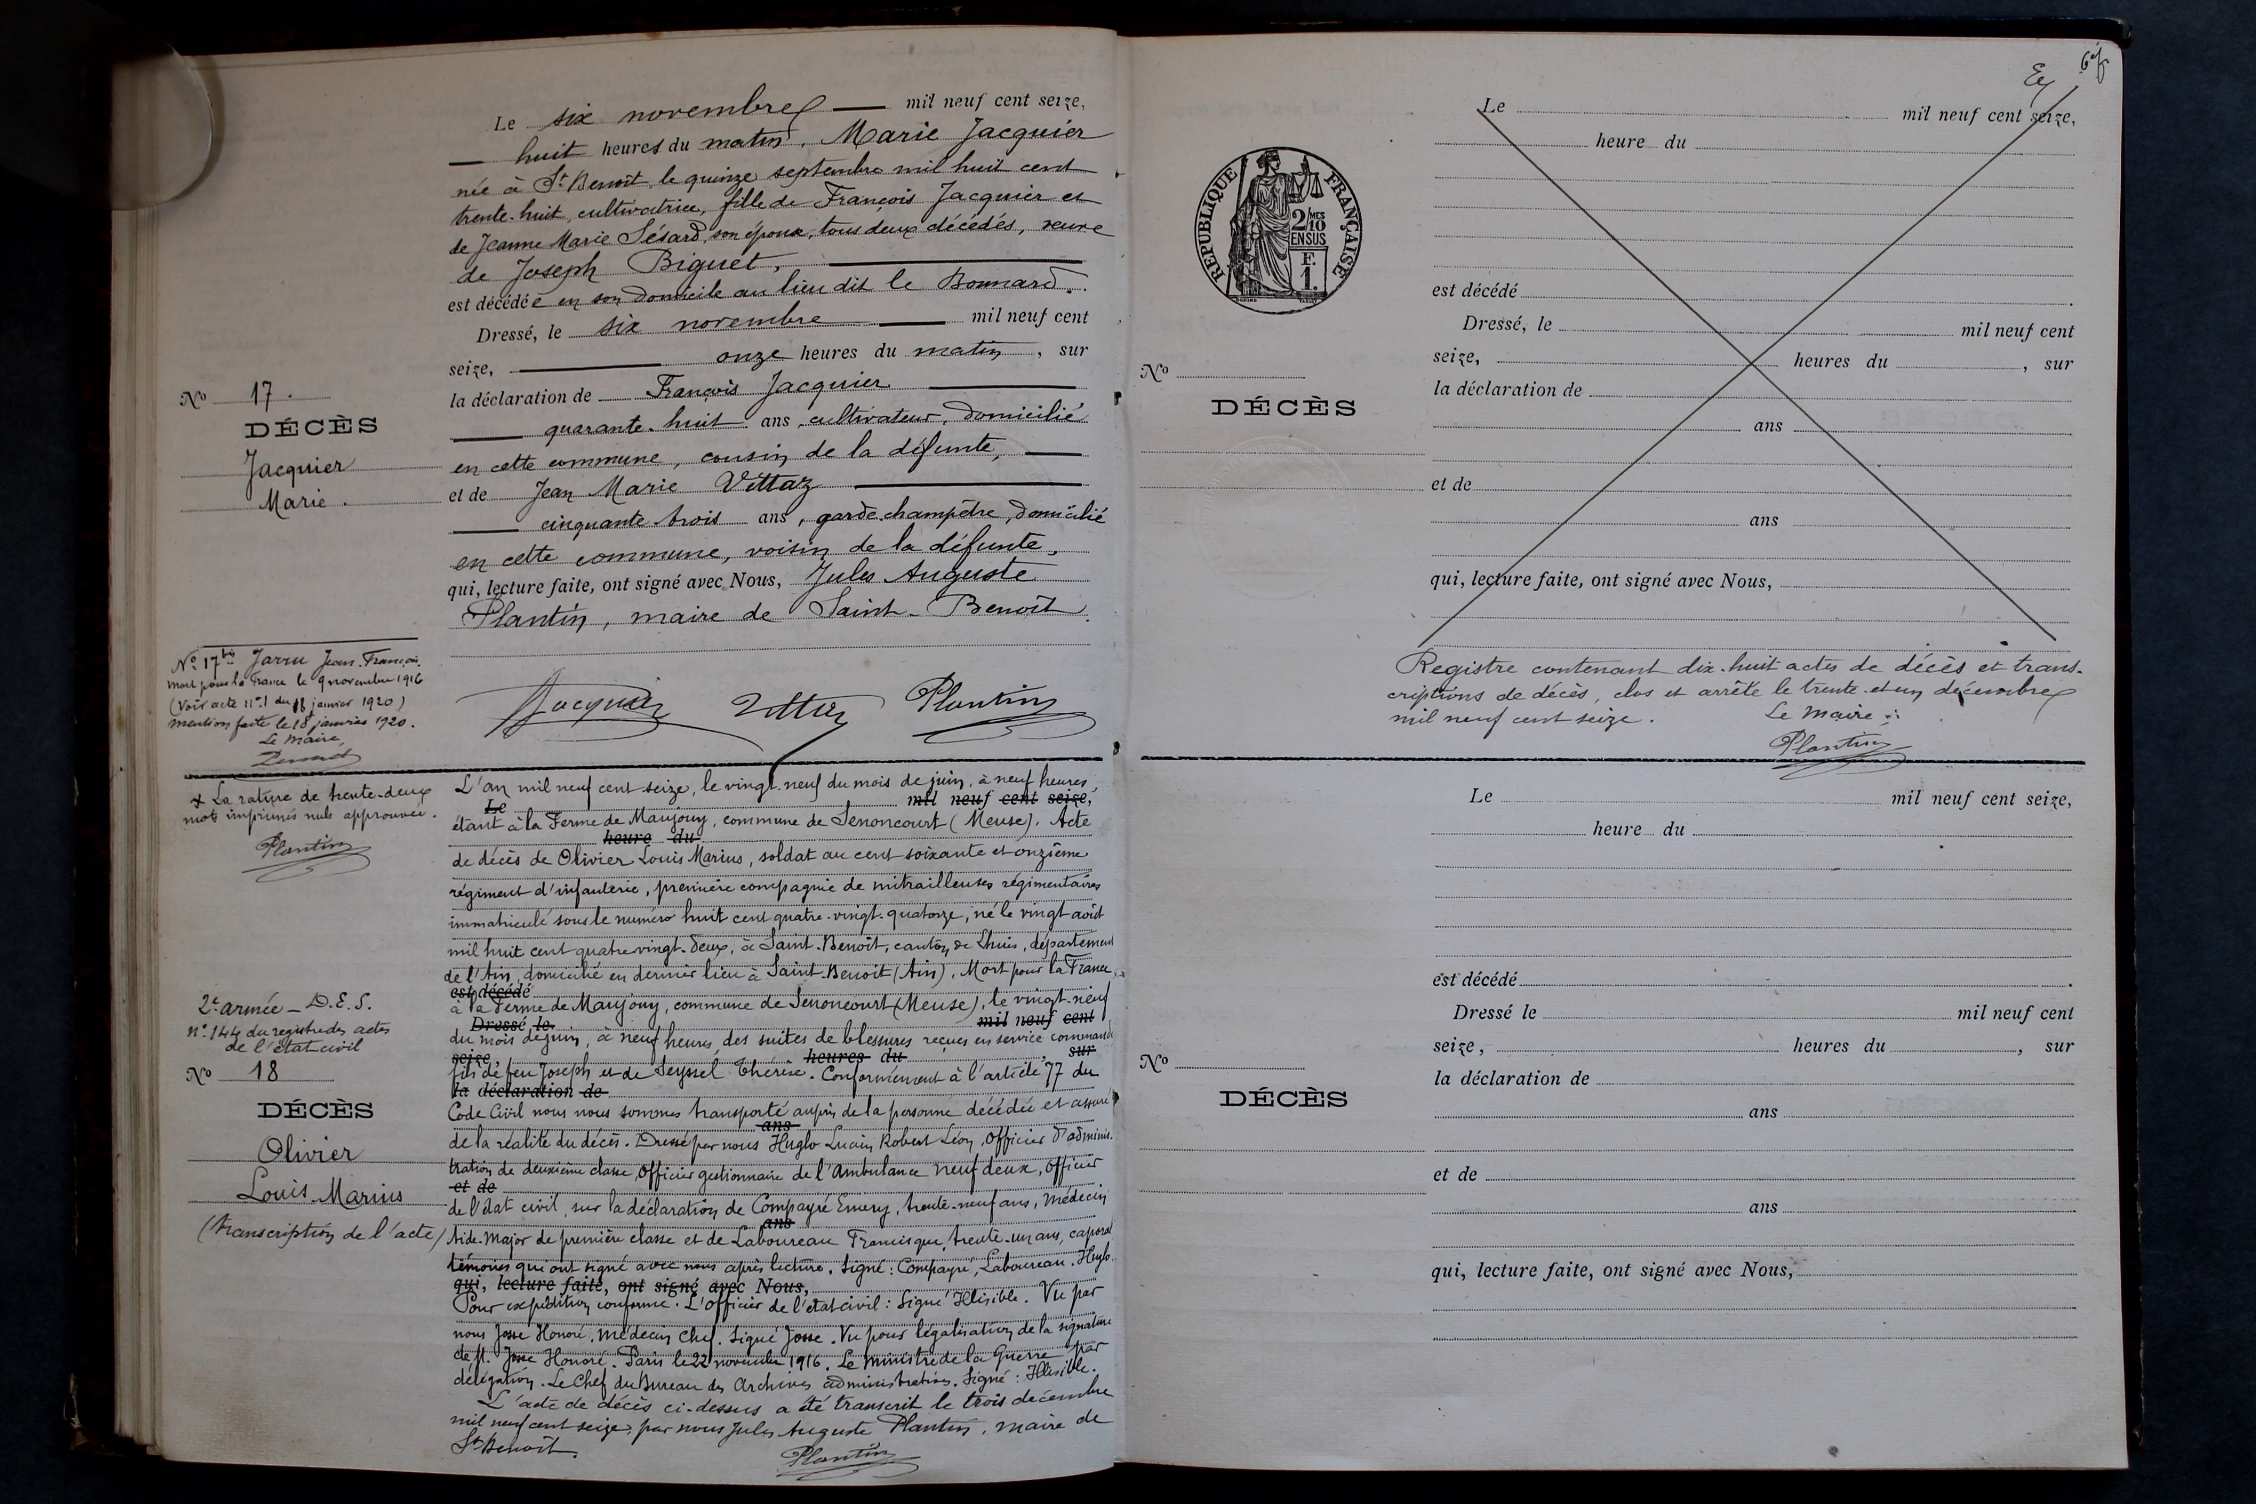 Le six novembre mil neuf cent seize,
huit heures du matin, Marie Jacquier
née à St Benoît, le quinze septembre mil huit cent
trente-huit, cultivatrice, fille de François Jacquier et
de Jeanne Marie Sésard, son épouse, tous deux décédés, veuve
de Joseph Biguet,
est décédée en son domicile au lieu dit le Bonnard.
Dressé, le six novembre mil neuf cent
seize, onze heures du matin, sur
la déclaration de François Jacquier
quarante-huit ans, cultivateur, domicilié
en cette commune, cousin de la défunte,
et de Jean Marie Vettaz
cinquante trois ans, garde-champêtre, domicilié
en cette commune, voisin de la défunte,
qui, lecture faite, ont signé avec Nous, Jules Auguste
Plantin, maire de Saint-Benoît.
Jacquier Plantin
No 17.
DÉCÈS
Jacquier
Marie.
No 17bis Jarru Jean-François.
mort pour la France le 9 novembre 1916
(Voir acte no 1 du 18 janvier 1920)
mention faite le 18 janvier 1920.
Le Maire
+ La rature de trente-deux
mots imprimés nuls approuvée.
Plantin
2e armée - D.E.S.
No 144 du registre des actes
de l'état civil
No 18
DÉCÈS
Olivier
Louis Marius
(transcription de l'acte)
L'an mil neuf cent seize, le vingt-neuf du mois de juin, à neuf heures,
Le mil neuf cent seize,
étant à la Ferme de Maujouy, commune de Senoncourt (Meuse). Acte
heure du
de décès de Olivier Louis Marius, soldat au cent soixante et onzième
régiment d'infanterie, première compagnie de mitrailleuses régimentaires
immatriculé sous le numéro huit cent quatre-vingt-quatorze, né le vingt août
mil huit cent quatre vingt-deux, à Saint-Benoît, canton de Lhuis, département
de l'Ain, domicilié en dernier lieu à Saint-Benoît (Ain). Mort pour la France,
est décédé
à la Ferme de Maujouy, commune de Senoncourt (Meuse), le vingt-neuf
Dressé le mil neuf cent
du mois de juin, à neuf heures, des suites de blessures reçues en service commandé
seize, heures du sur
fils de feu Joseph et de Seyssel Thérèse. Conformément à l'article 77 du
la déclaration de
Code Civil nous nous sommes transporté auprès de la personne décédée et assuré
ans
de la réalité du décès. Dressé par nous Huglo Lucien Robert Léon, officier d'adminis-
tration de deuxième classe, officier gestionnaire de l'Ambulance neuf deux, officier
et de
de l'état civil, sur la déclaration de Compayré Emery, trente-neuf ans, médecin
ans
Aide-Major de première classe et de Laboureau Francisque, trente-un ans, caporal
témoins qui ont signé avec nous après lecture. Signé: Compayré, Laboureau. Huglo.
qui, lecture faite, ont signé avec Nous,
Pour expédition conforme. L'officier de l'état civil: Signé Illisible. Vu par
nous Josse Honoré, médecin chef. Signé Josse. Vu pour légalisation de la signature
de M. Josse Honoré. Paris le 22 novembre 1916. Le Ministre de la Guerre par
délégation. Le Chef du Bureau des Archives administratives. Signé: Illisible.
L'acte de décès ci-dessus a été transcrit le trois décembre
mil neuf cent seize, par nous Jules Auguste Plantin, maire de
St Benoît.
Plantin
Le mil neuf cent seize,
heure du
est décédé
Dressé, le mil neuf cent
seize, heures du , sur
la déclaration de
ans
et de
ans
qui, lecture faite, ont signé avec Nous,
RÉPUBLIQUE FRANÇAISE
2/10 MES
EN SUS
F.
1.
No
DÉCÈS
Registre contenant dix-huit actes de décès et trans-
criptions de décès, clos et arrêté le trente-et-un décembre
mil neuf cent seize. Le Maire:
Plantin
Le mil neuf cent seize,
heure du
est décédé
Dressé le mil neuf cent
seize, heures du , sur
la déclaration de
ans
et de
ans
qui, lecture faite, ont signé avec Nous,
No
DÉCÈS